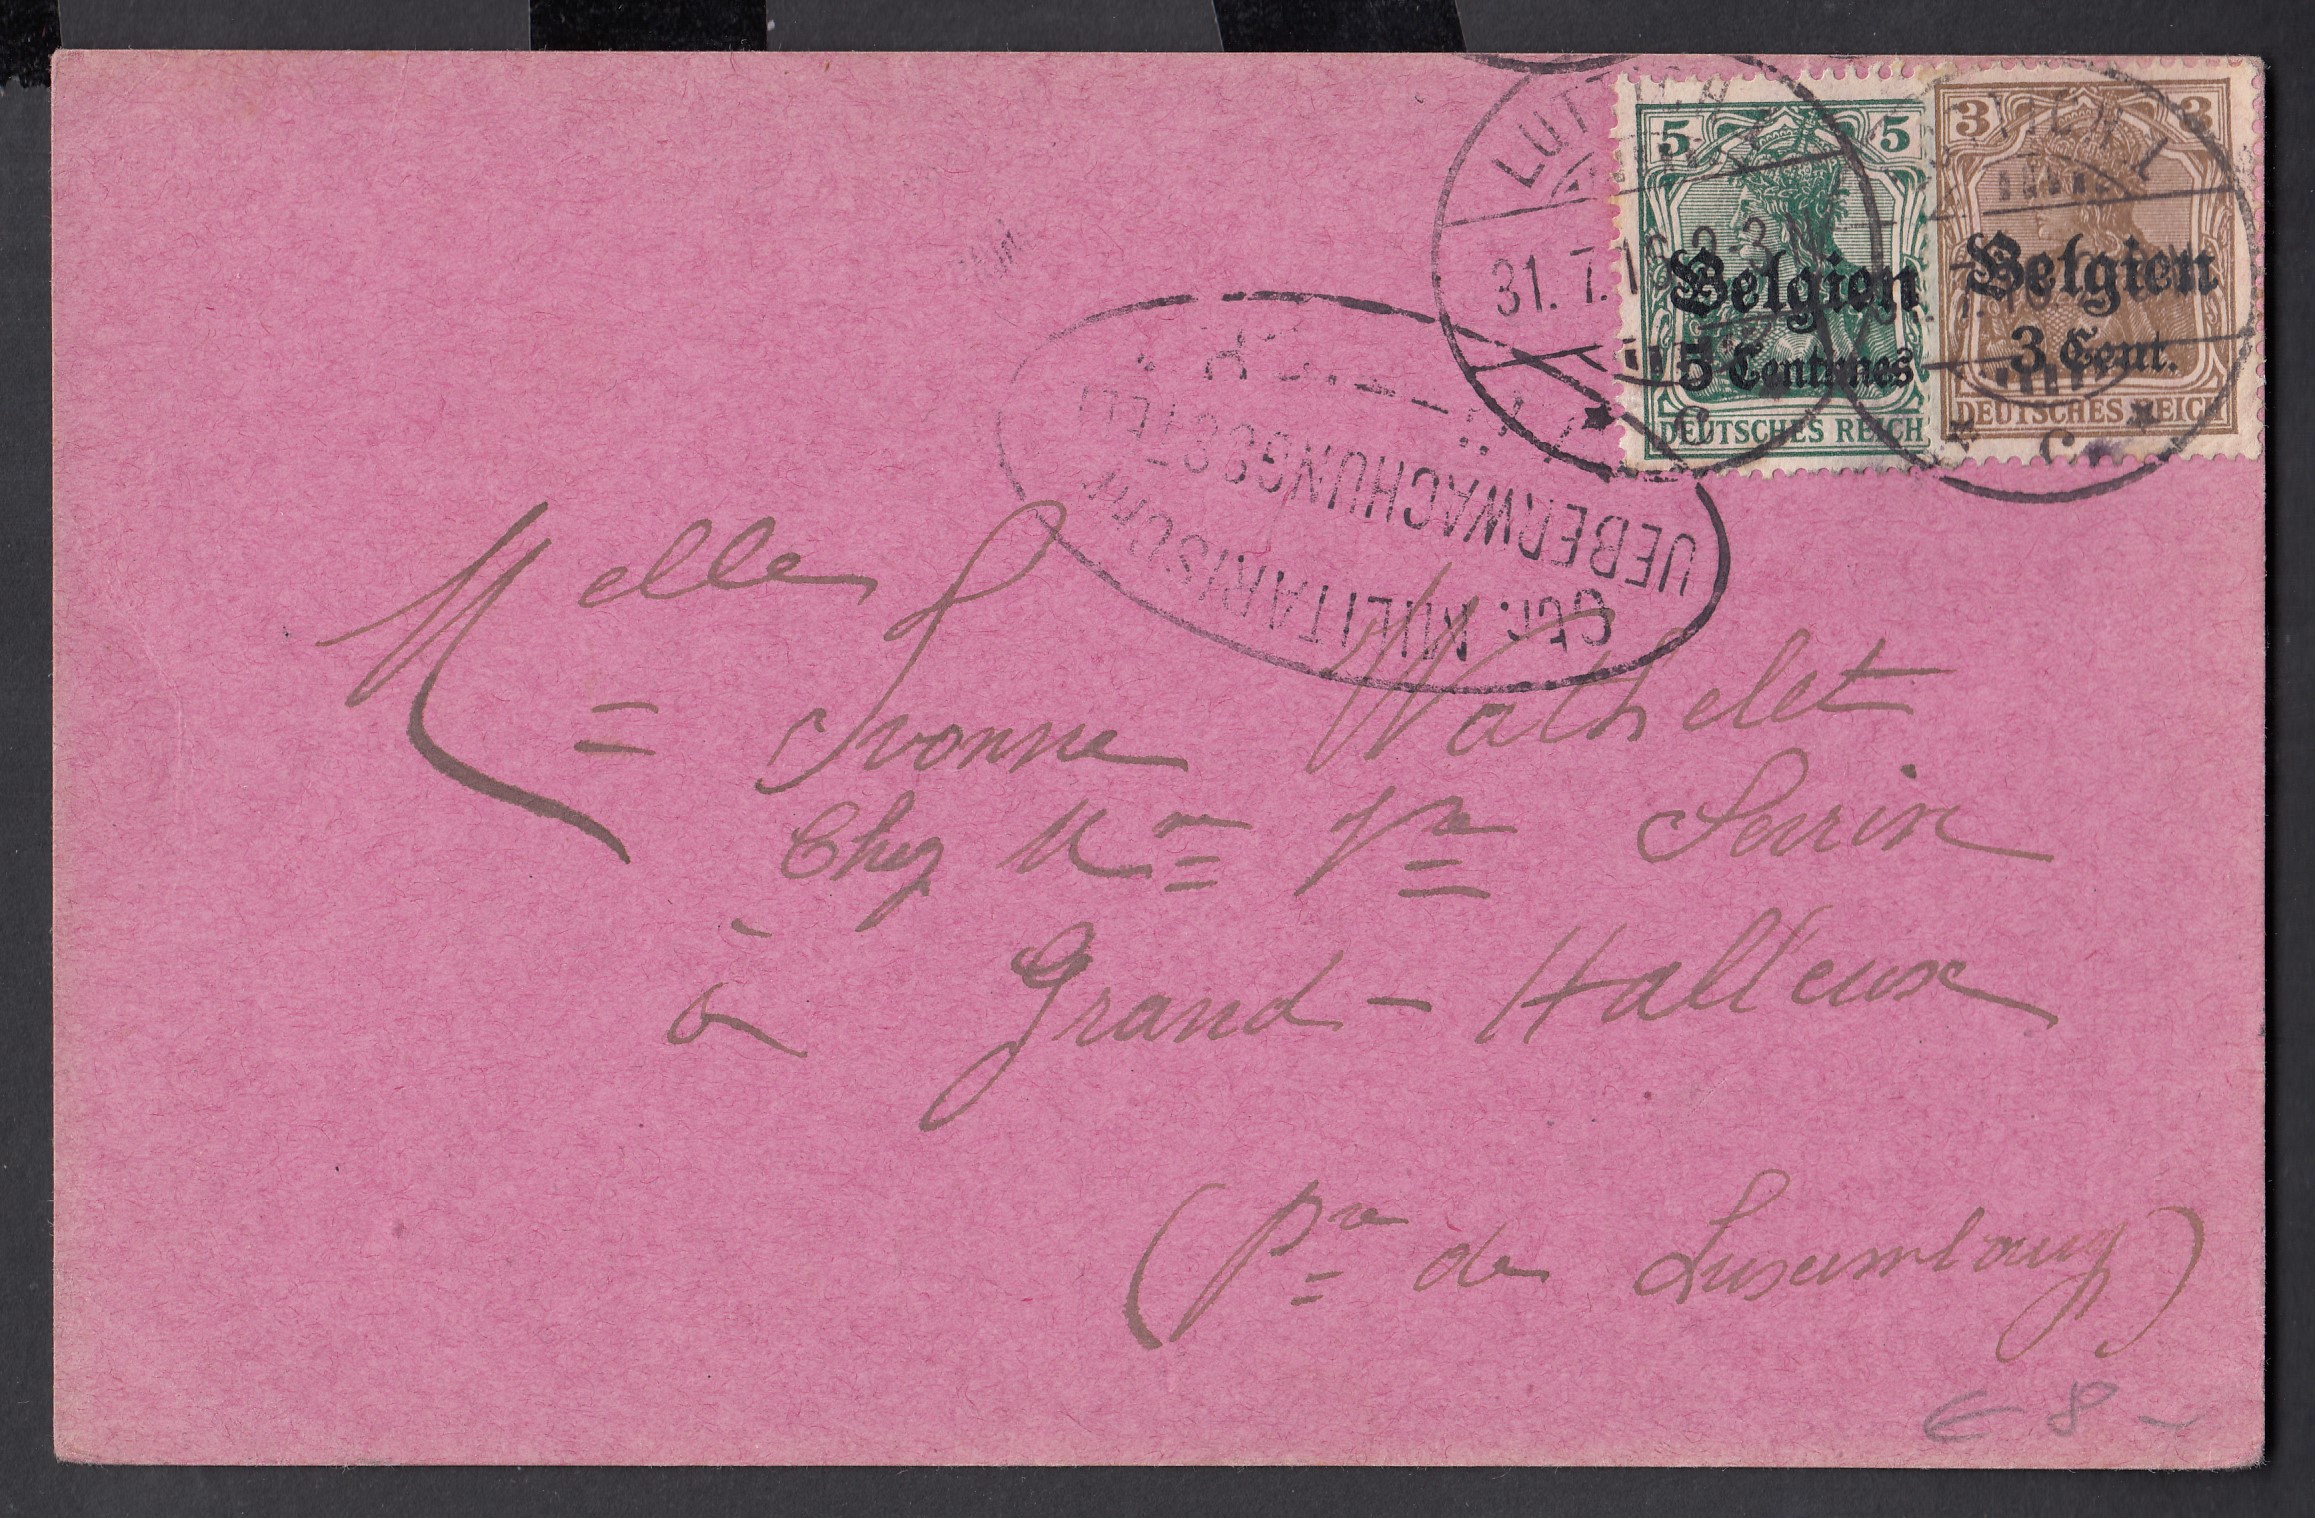 LÜTTICH
31. 7. 16. 2-3 N
C
5 5
Belgien
5 Centimes
DEUTSCHES REICH
3 3
Belgien
3 Cent.
DEUTSCHES REICH
C
MILITÄRISCHE
UEBERWACHUNGSSTELLE
Melle
Yvonne Wathelet
Chez Mme Vve Serrin
à Grand-Halleux
(Pce de Luxembourg)
€ 8 -